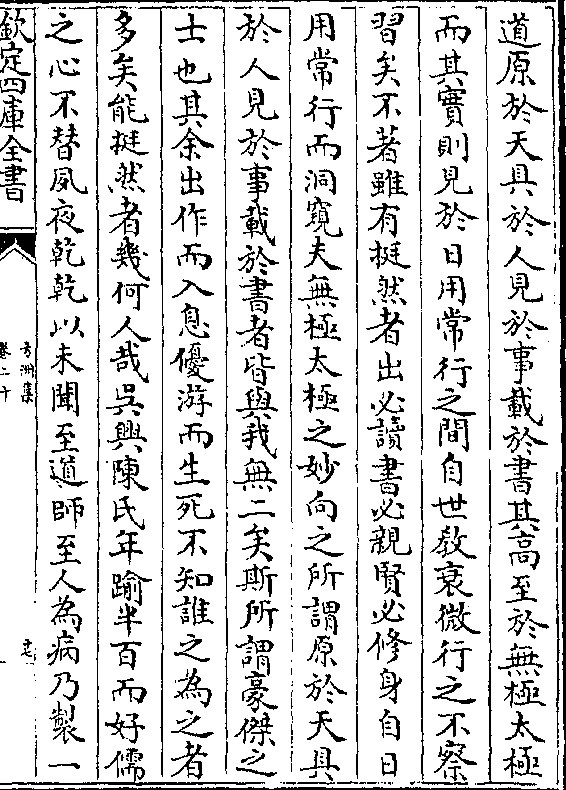 道原於天具於人見於事載於書其高至於無極太極
而其實則見於日用常行之間自世教衰微行之不察
習矣不著雖有挺然者出必讀書必親賢必修身自日
用常行而洞窺夫無極太極之妙向之所謂原於天具
於人見於事載於書者皆與我無二矣斯所謂豪傑之
士也其余出作而入息優游而生死不知誰之為之者
多矣能挺然者幾何人哉吳興陳氏年踰半百而好儒
之心不替夙夜乾乾以未聞至道師至人為病乃製一
欽定四庫全書
方洲集
卷二十